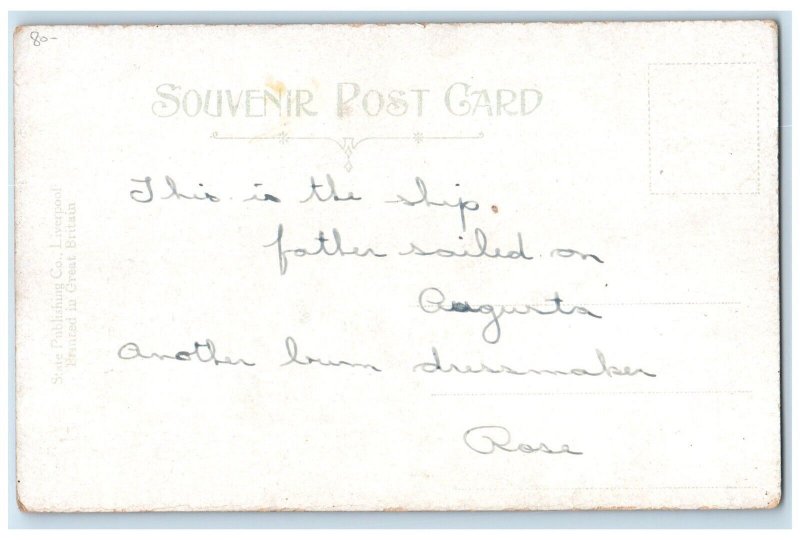 80-
SOUVENIR POST CARD
This is the ship.
father sailed on
Augusta
Another bum dressmaker
Rose
State Publishing Co., Liverpool
Printed in Great Britain